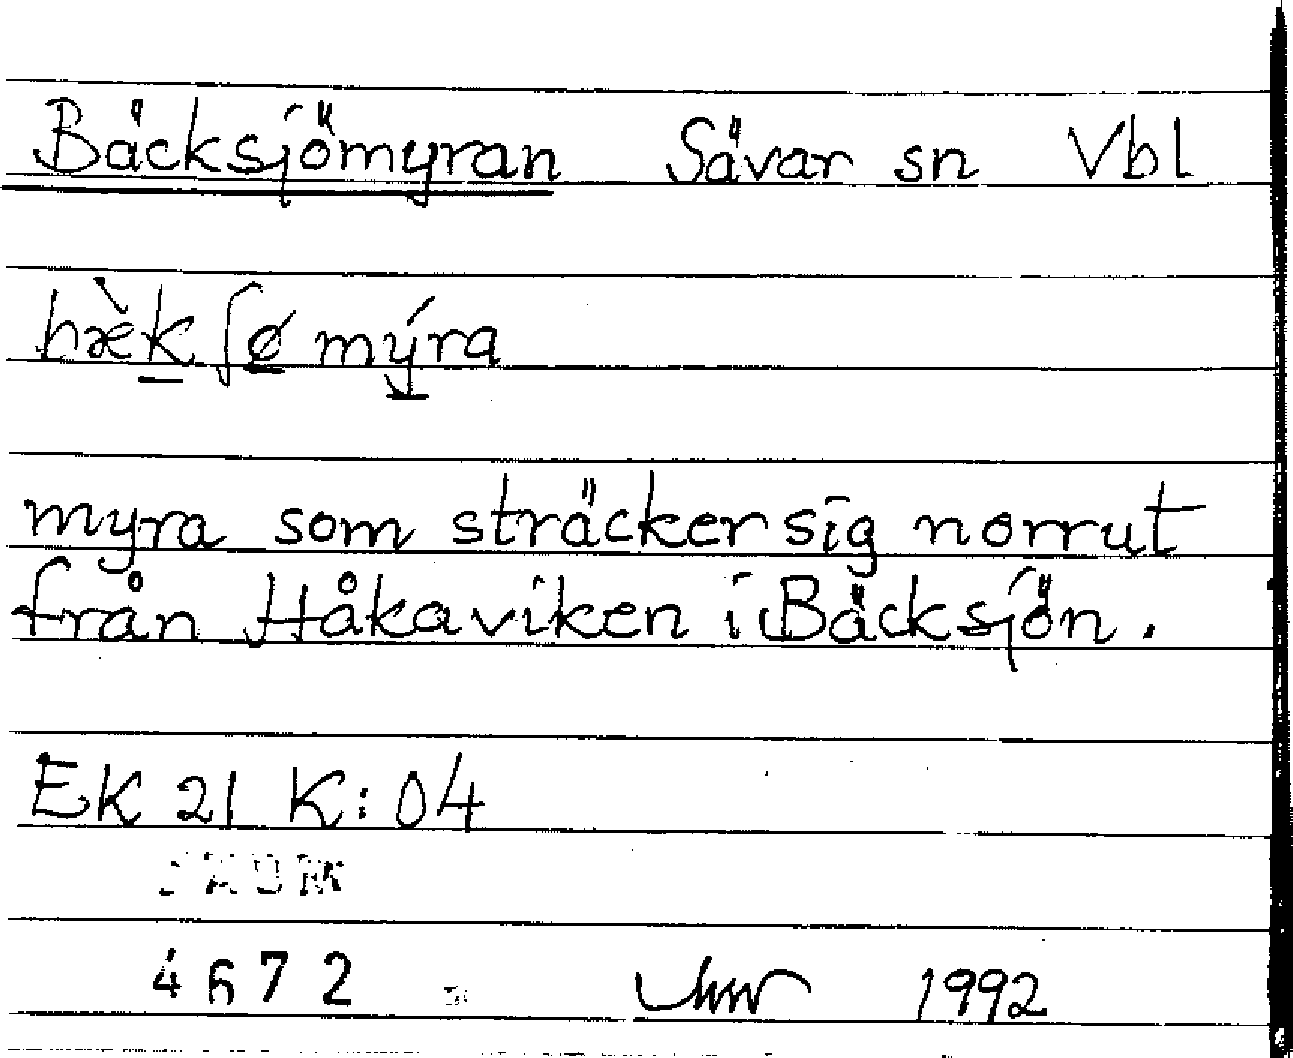 Bäcksjömyran Sävar sn Vbl
bæ̀kʃømýra
myra som sträcker sig norrut
från Håkaviken i Bäcksjön.
EK 21 K:04
4672 1992